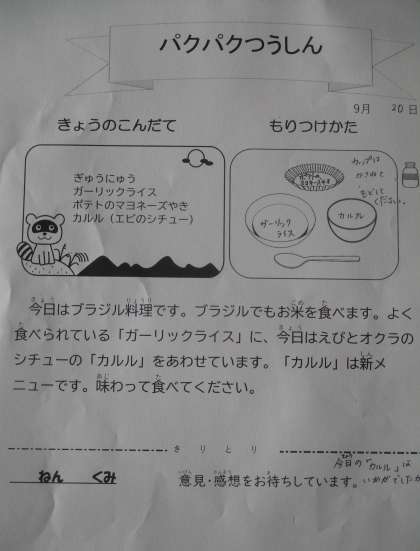 パクパクつうしん
9月 20日
きょうのこんだて
もりつけかた
ぎゅうにゅう
ガーリックライス
ポテトのマヨネーズやき
カルル（エビのシチュー）
カップは
かさねて
もどして
ください。
ポテトの
マヨネーズやき
ガーリック
ライス
カルル
今日はブラジル料理です。ブラジルでもお米を食べます。よく
食べられている「ガーリックライス」に、今日はえびとオクラの
シチューの「カルル」をあわせています。「カルル」は新メ
ニューです。味わって食べてください。
きりとり
ねん くみ
意見・感想をお待ちしています。
今日の「カルル」は
いかがでしたか